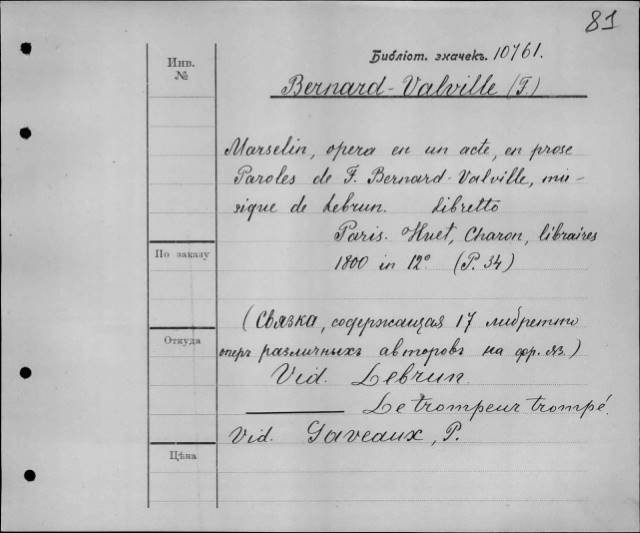 81
Библіот. значекъ. 10761.
Инв.
№
Bernard-Valville (F.)
Marselin, opera en un acte, en prose
Paroles de F. Bernard-Valville, mu-
sique de Lebrun. Libretto
Paris. Huet, Charon, libraires
По заказу
1800 in 12° (P. 34)
(Связка, содержащая 17 либретто
Откуда
оперъ различныхъ авторовъ на фр. яз.)
Vid. Lebrun.
Le trompeur trompé.
Vid. Gaveaux, P.
Цѣна